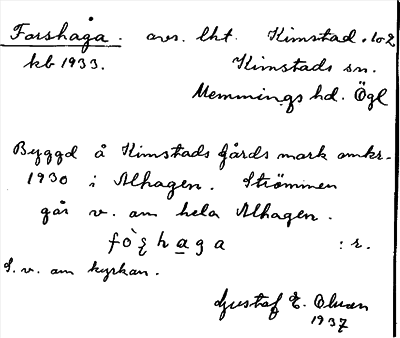 Forshaga. avs. lht. Kimstad. 1o2
kb 1933. Kimstads sn.
Memmings hd. Ögl
Byggd å Kimstads gårds mark omkr.
1930 i Alhagen. Strömmen
går v. om hela Alhagen.
fò̀ʂhaga :r.
S. v. om kyrkan.
Gustaf E. Olsson
1937